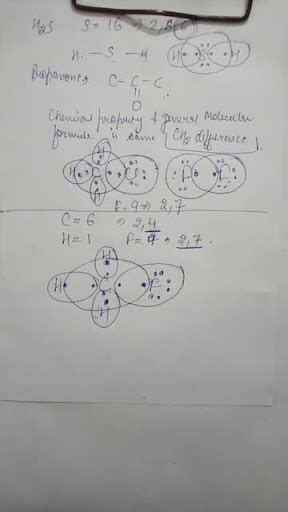 H2S S = 16 ⇒ 2,8,6
H - S - H H S H
Propanones C - C - C
O
Chemical property & general Molecular
formula is same CH2 difference.
H
H C Cl F F
H
F = 9 ⇒ 2,7
C = 6 ⇒ 2,4
H = 1 F = 9 ⇒ 2,7.
H
H C F
H